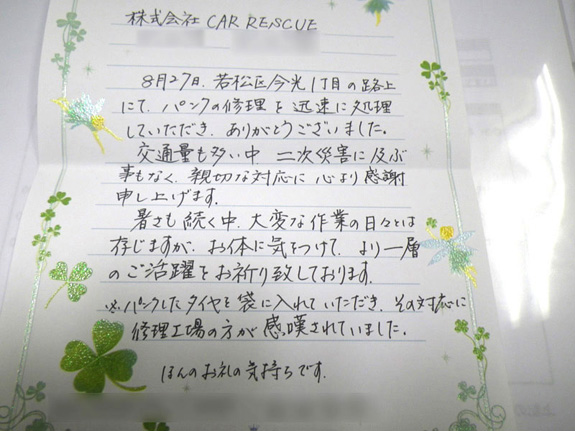 株式会社 CAR RESCUE
8月27日、若松区今光1丁目の路上
にて、パンクの修理を迅速に処理
していただき、ありがとうございました。
交通量も多い中、二次災害に及ぶ
事もなく、親切な対応に心より感謝
申し上げます。
暑さも続く中、大変な作業の日々とは
存じますが、お体に気をつけて、より一層
のご活躍をお祈り致しております。
※パンクしたタイヤを袋に入れていただき、その対応に
修理工場の方が感嘆されていました。
ほんのお礼の気持ちです。